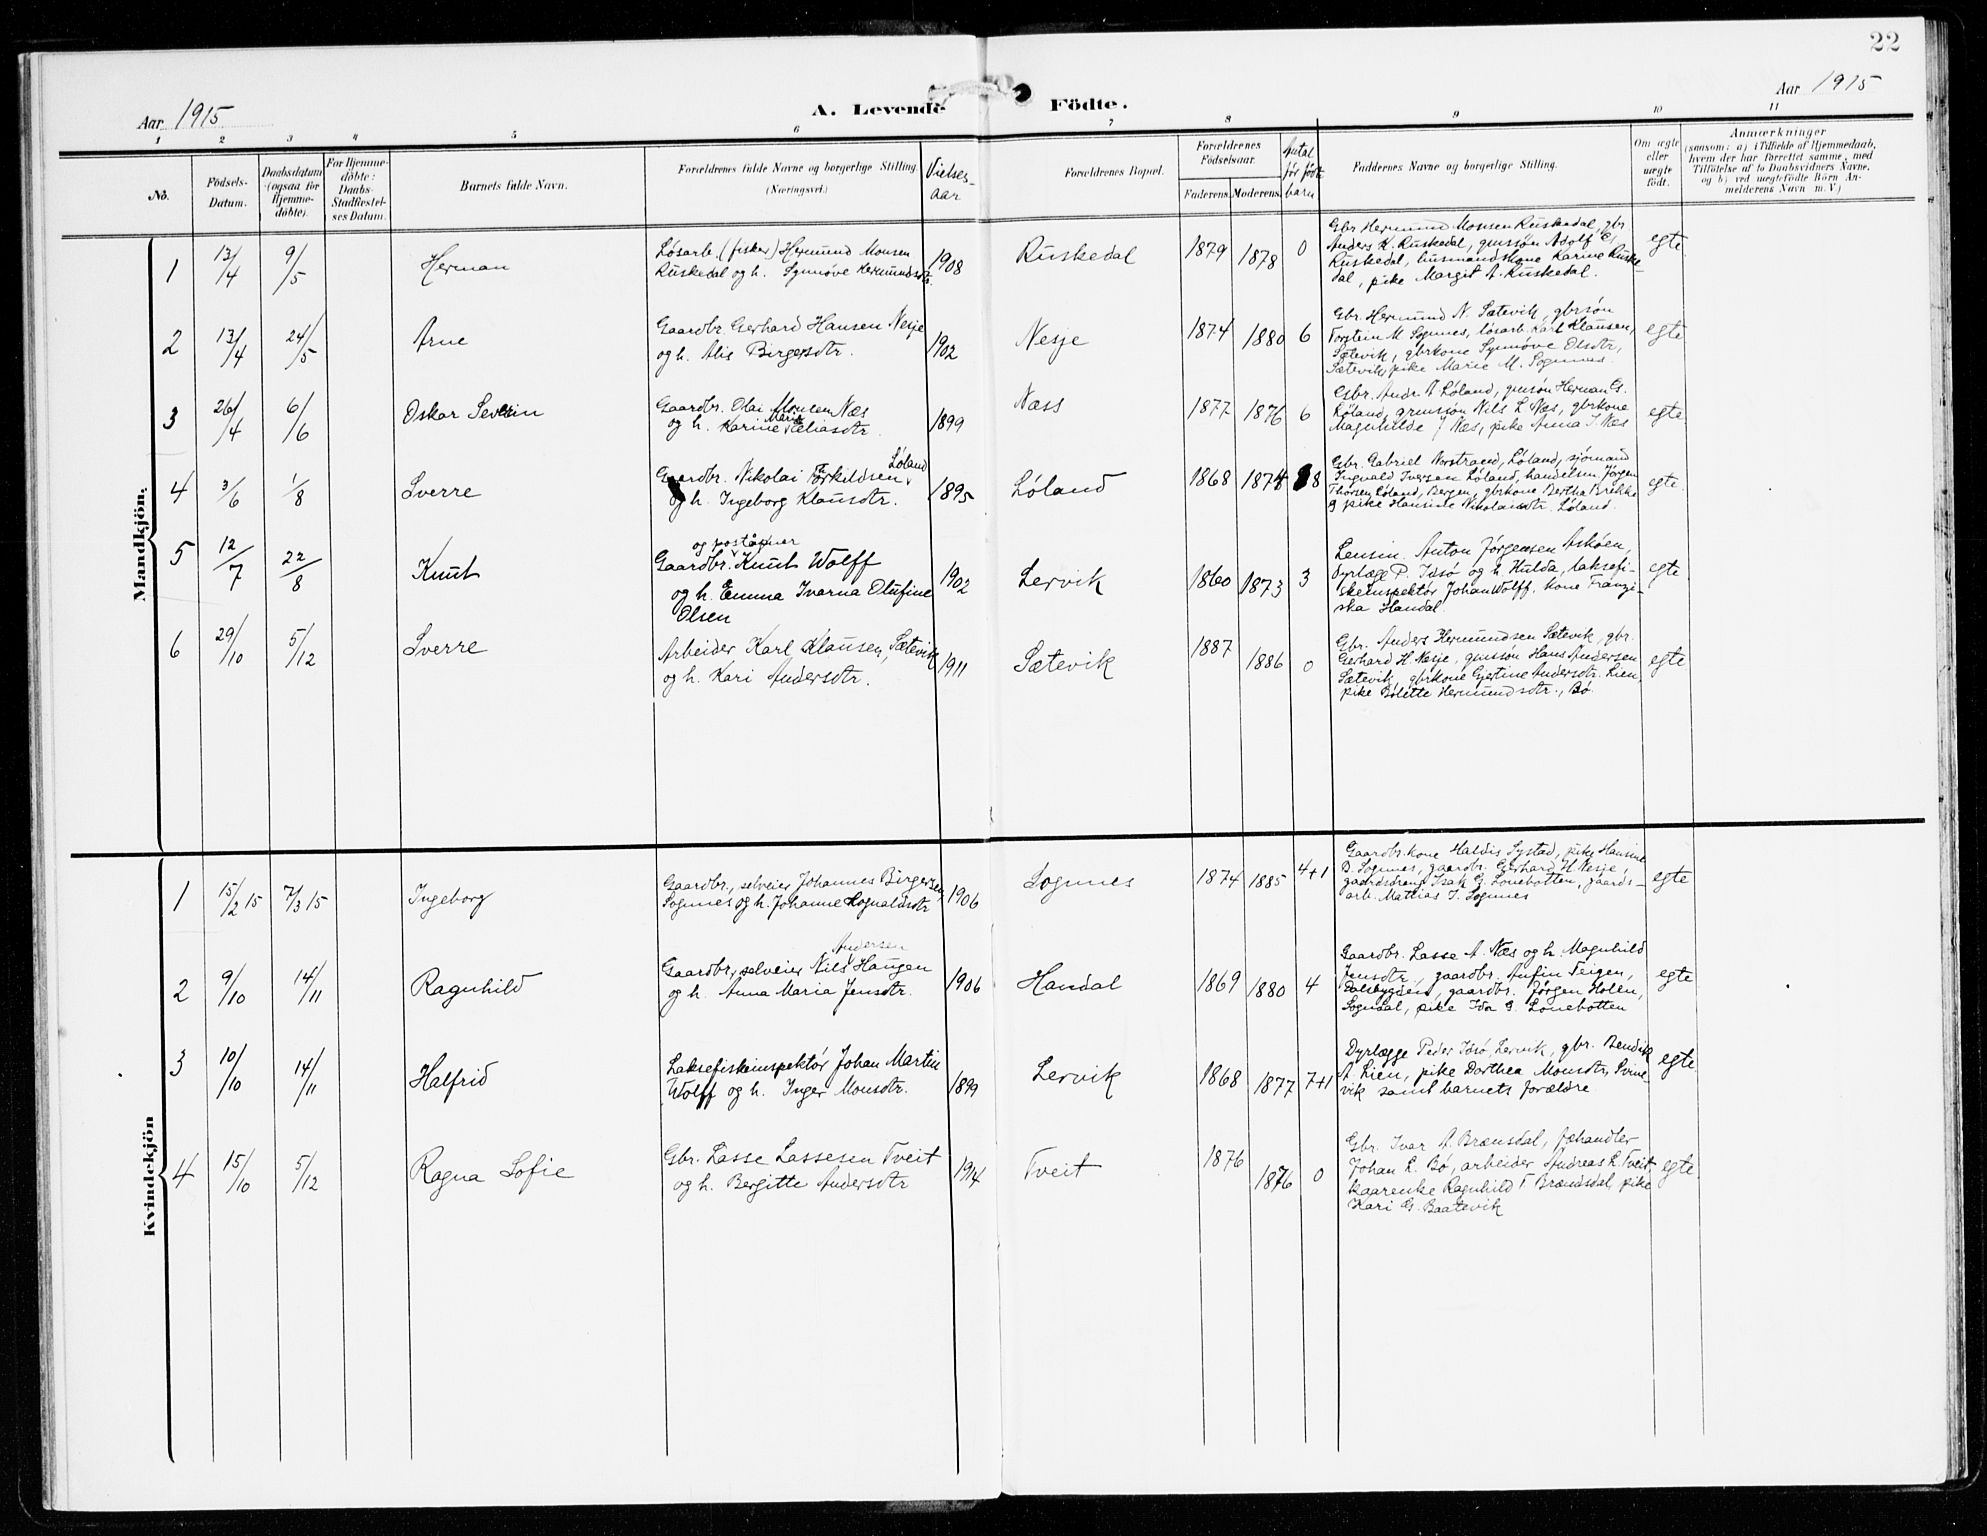 22
Aar 1915
A. Levende Födte.
Aar 1915
1 2 3 4 5 6 7 8 9 10 11
No.
Födsels-
Datum.
Daabsdatum
(ogsaa for
Hjemme-
döbte).
For Hjemme-
döbte:
Daabs-
Stadfæstel-
ses Datum.
Barnets fulde Navn.
Forældrenes fulde Navne og borgerlige Stilling.
(Næringsvei.)
Vielses-
aar
Forældrenes Bopæl.
Forældrenes
Födselsaar.
Faderens.
Moderens.
Antal
før fødte
barn
Faddernes Navne og borgerlige Stilling.
Om ægte
eller
uægte
født.
Anmærkninger
(saasom: a) i Tilfælde af Hjemmedaab,
hvem der har forrettet samme, med
Tilföielse af to Daabsvidners Navne.
og b) ved uægtefödte Börn An-
melderens Navn m. V.)
Mandkjön.
1 13/4 9/5 Herman
Løsarb. (fisker) Hermund Monsen
Ruskedal og h. Synnøve Hermundsdtr.
1908 Ruskedal 1879 1878 0
Gbr Hermund Monsen Ruskedal, gbr
Anders K. Ruskedal, gmssøn Adolf E.
Ruskedal, husmandskone Karine Ruske-
dal, pike Margit A. Ruskedal.
egte
2 13/4 24/5 Arne
Gaardbr. Gerhard Hansen Nesje
og h. Alis Birgersdtr.
1902 Nesje 1874 1880 6
Gbr. Hermund N. Sætevik, gbrsøn
Torstein M Sognnes, løsarb. Karl Klausen,
Sætevik, gbrkone Synnøve Olsdtr,
Sætevik, pike Marie M. Sognnes.
egte
3 26/4 6/6 Oskar Severin
Gaardbr. Olai Monsen Næs
og h. Karine Marie Eliasdtr.
1899 Næss 1877 1876 6
Gbr. Andr. A Løland, gmsøn Herman G.
Løland, gmssøn Nils L Næs, gbrkone
Magnhilde J Næs, pike Anna I. Næs
egte
4 3/6 1/8 Sverre
Gaardbr. Nikolai Torkildsen Løland
og h. Ingeborg Klausdtr.
1895 Løland 1868 1874 8
Gbr. Gabriel Norstrand, Løland, sjømand
Ingvald Iversen Løland, handelsm Jørgen
Thorsen Løland, Bergen, gbrkone Bertha Brekke
og pike Hansine Nikolaisdtr. Løland.
egte.
5 12/7 22/8 Knut
og postaapner
Gaardbr. Knut Wolff
og h. Emma Ivarna Olufine
Olsen
1902 Lervik 1860 1873 3
Lensm. Anton Jørgensen Askøen,
Dyrlæge P. Idsø og h. Hulda, laksefi-
skeinspektør Johan Wolff, kone Franzi-
ska Handal.
egte
6 29/10 5/12 Sverre
Arbeider Karl Klausen, Sætevik
og h. Kari Andersdtr.
1911 Sætevik 1887 1886 0
Gbr. Anders Hermundsen Sætevik, gbr.
Gerhard H Nesje, gmssøn Hans Andersen
Sætevik, gbrkone Gjertine Andersdtr. Lien,
pike Bolette Hermundsdtr., Bø.
egte
Kvindekjön
1 15/2 15 7/3 15 Ingeborg
Gaardbr., selveier Johannes Birgersen
Sognnes og h. Johanne Rognaldsdtr
1906 Sognnes 1874 1885 4+1
Gaardbr.kone Haldis Systad, pike Hansine
D. Sognnes, gaardbr. Gerhard H Nesje,
gaardsdreng Isak G. Lonebotten, gaards-
arb. Mattias J. Sognnes
egte
2 9/10 14/11 Ragnhild
Andersen
Gaardbr., selveier Nils Haugen
og h. Anna Maria Jensdtr.
1906 Handal 1869 1880 4
Gaardbr. Lasse A. Næs og h. Magnhild
Jensdtr., gaardbr. Anfin Teigen,
Dalsbygden, gaardbr. Jørgen Holen,
Sogndal, pike Ida G. Lonebotten
egte
3 10/10 14/11 Halfrid
Laksefiskeinspektør Johan Martin
Wolff og h. Inger Monsdtr.
1899 Lervik 1868 1877 7+1
Dyrlægge Peder Idsø, Lervik, gbr. Bendik
A. Lien, pike Dorthea Monsdtr, Svine-
vik samt barnets forældre
egte
4 15/10 5/12 Ragna Sofie
Gbr. Lasse Lassesen Tveit
og h. Bergitte Andersdtr
1914 Tveit 1876 1876 0
Gbr. Ivar A. Brænsdal, fæhandler
Johan L. Bø, arbeider Andreas L. Tveit,
kaarenke Ragnhild T Brændsdal, pike
Kari G. Baatevik
egte.